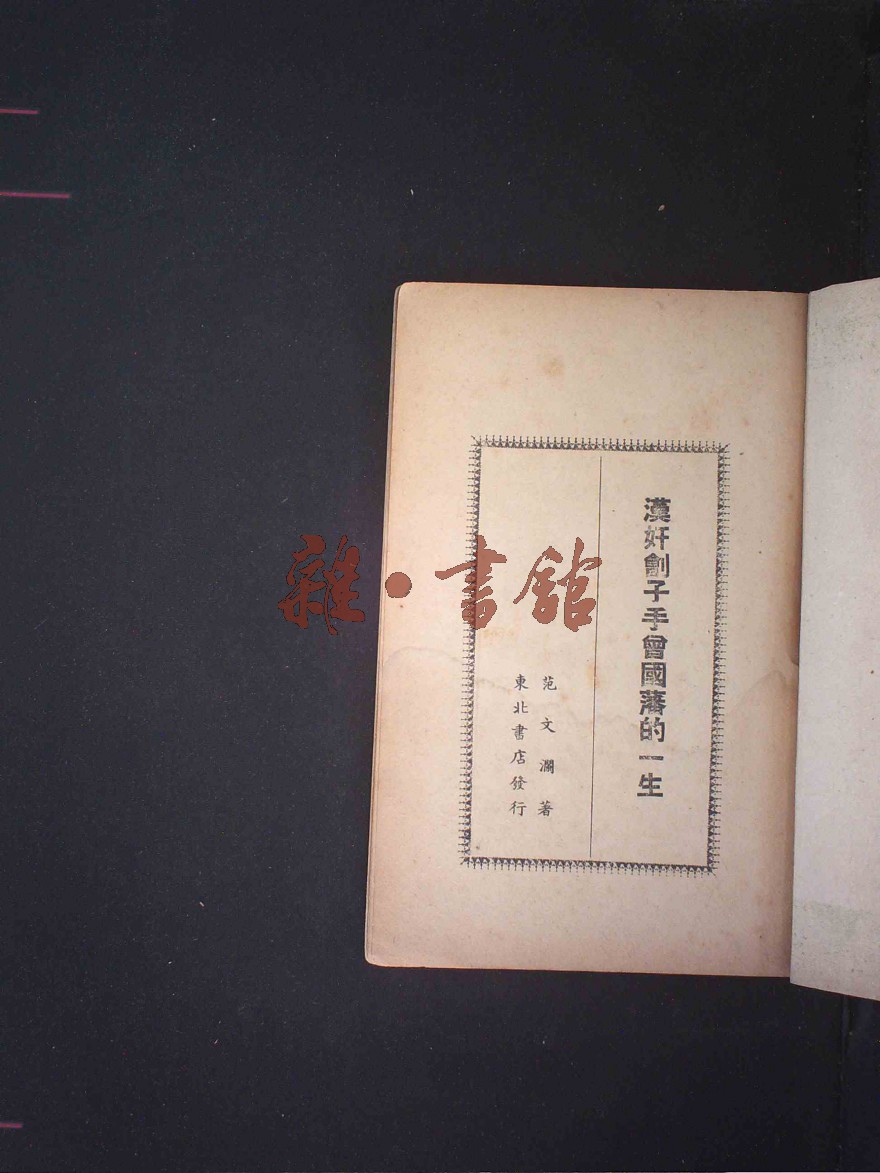 漢奸劊子手曾國藩的一生
范文瀾著
東北書店發行
雜·書館